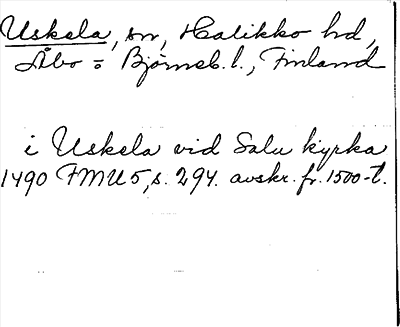 Uskela, sn, Halikko hd,
Åbo = Björneb. l., Finland
i Uskela vid Salu kyrka
1490 FMU 5, s. 294. avskr. fr. 1500-t.